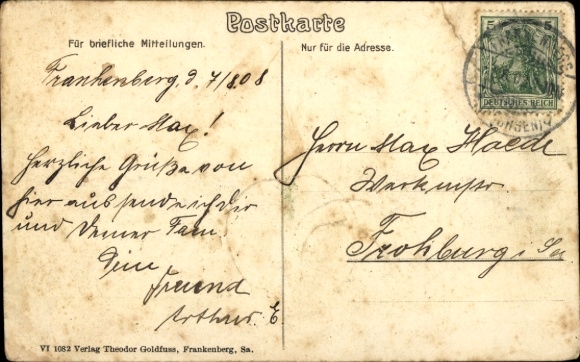 Postkarte
Für briefliche Mitteilungen.
Nur für die Adresse.
Frankenberg, d. 7/8 08
Lieber Max!
Herzliche Grüße von
hier aus sende ich dir
und Deiner Fam.
Dein
Freund
Arthur. E
Herrn Max
Werkmstr.
Frohburg i. Sa
5 5
DEUTSCHES REICH
(SACHSEN)
VI 1082 Verlag Theodor Goldfuss, Frankenberg, Sa.